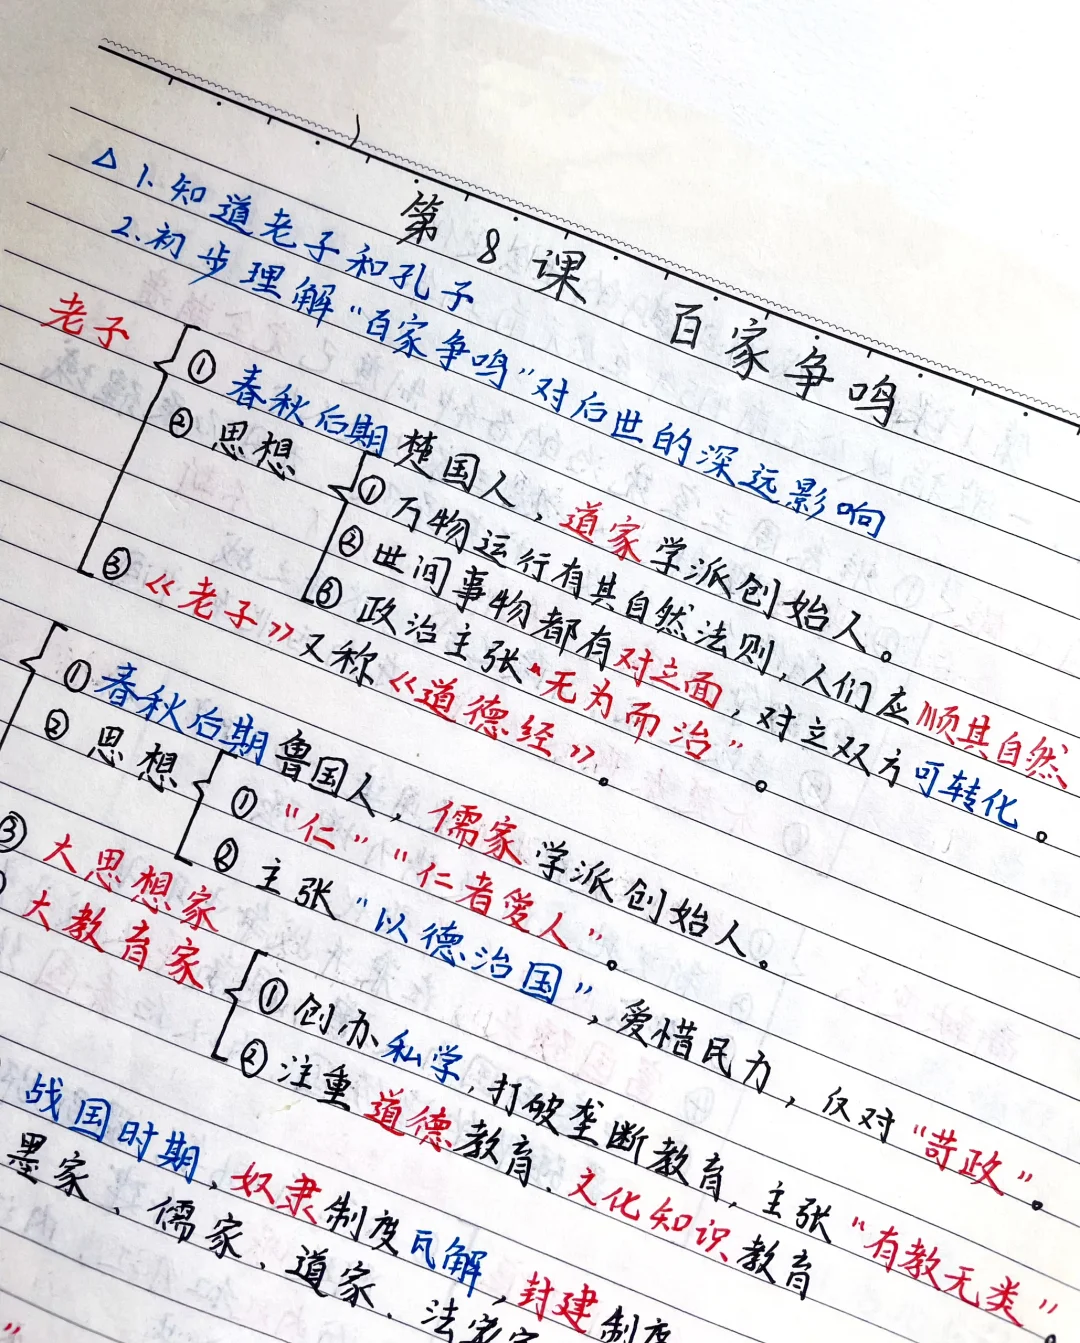 第8课 百家争鸣
△1.知道老子和孔子
2.初步理解“百家争鸣”对后世的深远影响
老子
①春秋后期楚国人，道家学派创始人。
②思想
①万物运行有其自然法则，人们应顺其自然
②世间事物都有对立面，对立双方可转化。
③政治主张“无为而治”。
③《老子》又称《道德经》。
①春秋后期鲁国人，儒家学派创始人。
②思想
①“仁”“仁者爱人”。
②主张“以德治国”，爱惜民力，仅对“苛政”。
③大思想家
大教育家
①创办私学，打破垄断教育，主张“有教无类”。
②注重道德教育、文化知识教育
战国时期，奴隶制度瓦解，封建制度
墨家、儒家、道家、法家